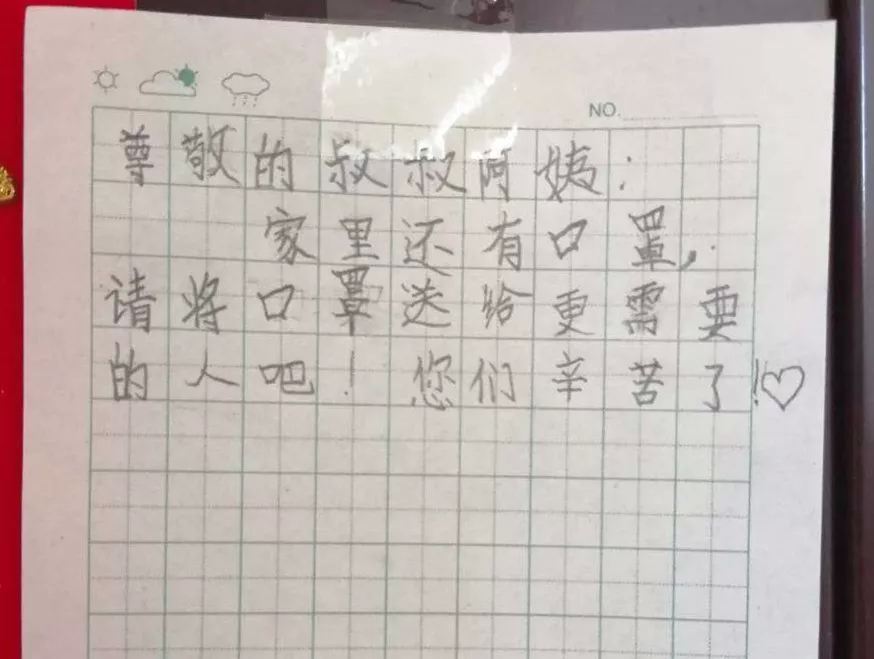 NO.
尊敬的叔叔阿姨：
家里还有口罩，
请将口罩送给更需要
的人吧！您们辛苦了！♡